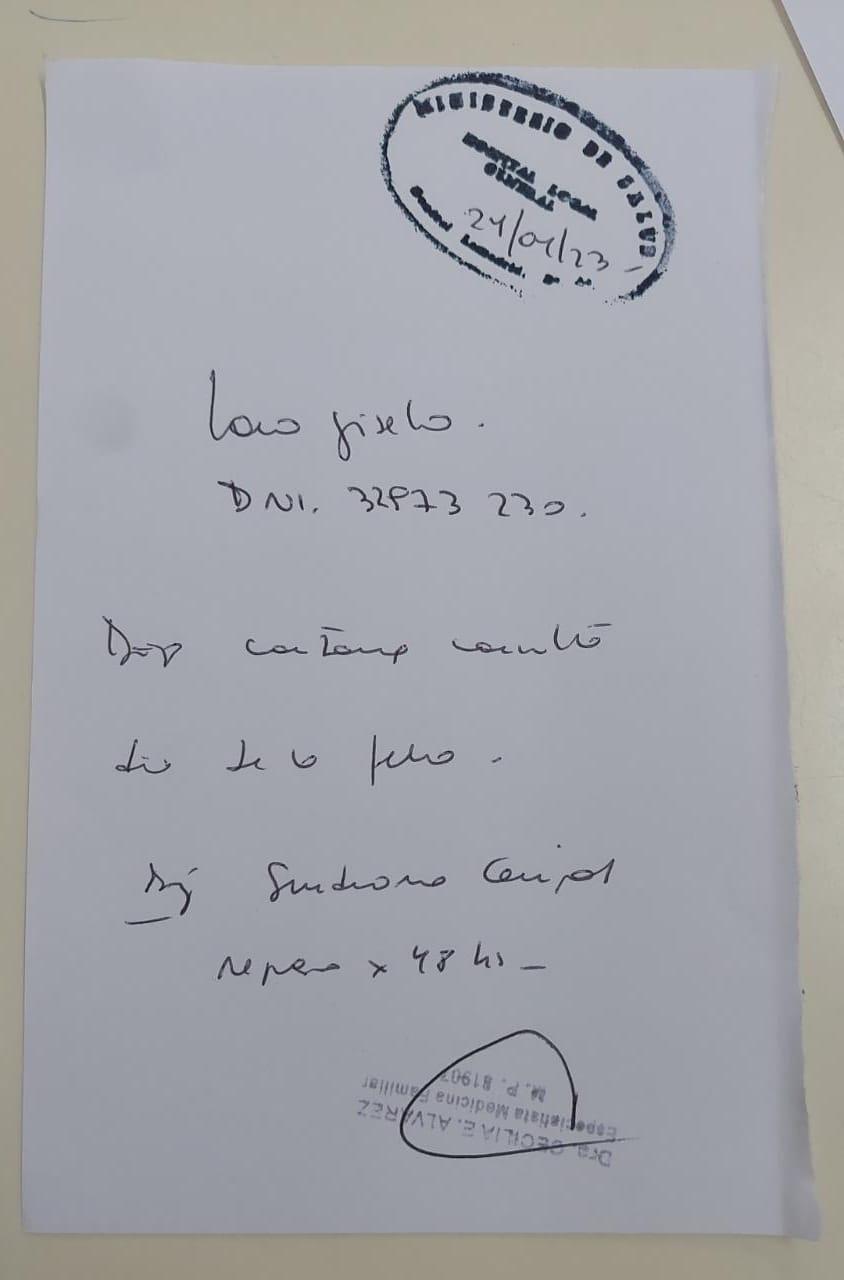 MINISTERIO DE SALUD
HOSPITAL LOCAL
GENERAL
24/04/23
Gisela.
DNI. 32973 230.
Dejo constancia consultó
día de la fecha.
Dg Sindrome Gripal
reposo x 48 hs
Dra. CECILIA E. ALVAREZ
Especialista Medicina Familiar
M.P. 81907